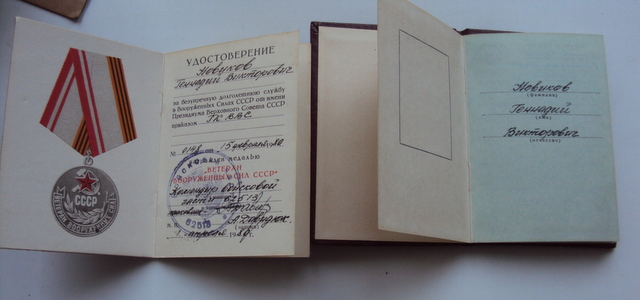 УДОСТОВЕРЕНИЕ
Новиков
Геннадий Викторович
за безупречную долголетнюю службу
в Вооружённых Силах СССР от имени
Президиума Верховного Совета СССР
приказом ГК ВВС
№ 0148 15 февраля
награждён медалью
"ВЕТЕРАН
ВООРУЖЁННЫХ СИЛ СССР"
Командир войсковой
части 62513
62513
апреля
СССР
ВЕТЕРАН ВООРУЖЕННЫХ СИЛ
Новиков
(фамилия)
Геннадий
(имя)
Викторович
(отчество)